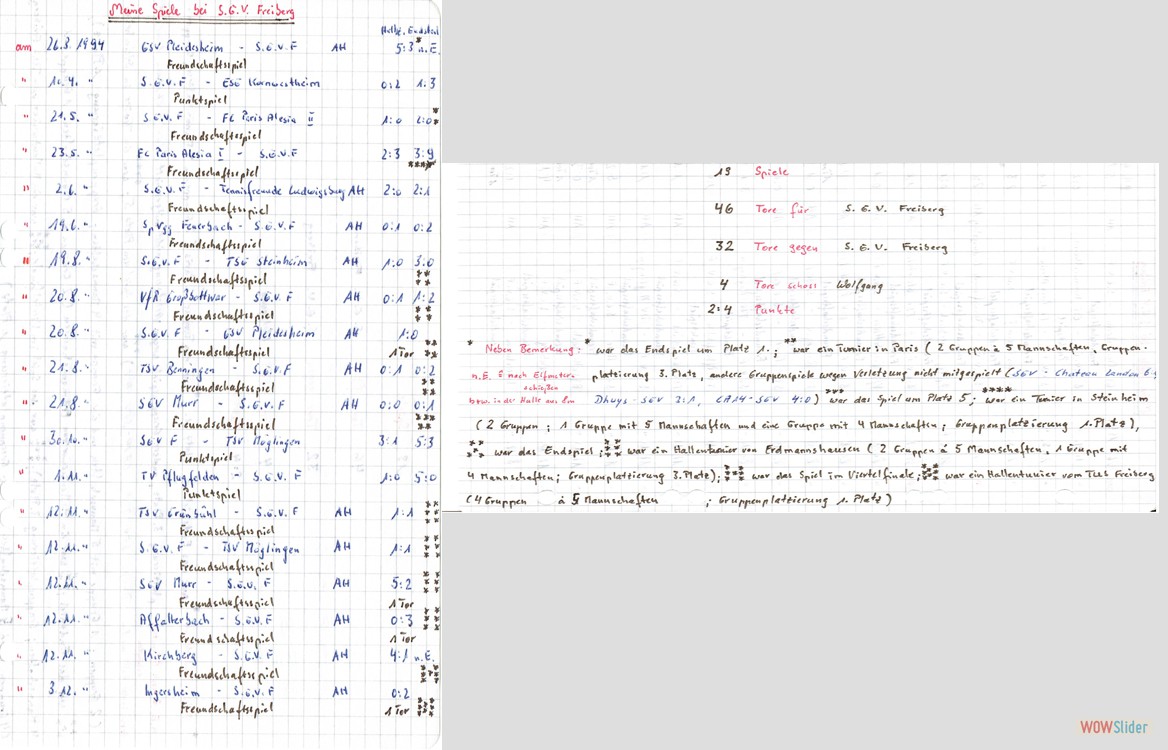 Meine Spiele bei S.G.V. Freiberg
Halbz. Endstd.
am 26.3.1994 GSV Pleidesheim - S.G.V.F AH 5:3* n.E.
Freundschaftsspiel
" 16.4. " S.G.V.F - ESG Kornwestheim 0:2 1:3
Punktspiel
" 21.5. " S.G.V.F - FC Paris Alesia II 1:0 2:0 **
Freundschaftsspiel
" 23.5. " FC Paris Alesia I - S.G.V.F 2:3 3:9
Freundschaftsspiel
" 2.6. " S.G.V.F - Tennisfreunde Ludwigsburg AH 2:0 2:1
Freundschaftsspiel
" 19.6. " SpVgg Feuerbach - S.G.V.F AH 0:1 0:2
Freundschaftsspiel
" 19.8. " S.G.V.F - TSG Steinheim AH 1:0 3:0
Freundschaftsspiel
" 20.8. " VfR Großbottwar - S.G.V.F AH 0:1 1:2
Freundschaftsspiel
" 20.8. " S.G.V.F - GSV Pleidesheim AH 1:0
Freundschaftsspiel 1 Tor
" 21.8. " TSV Benningen - S.G.V.F AH 0:1 0:2
Freundschaftsspiel
" 21.8. " SGV Murr - S.G.V.F AH 0:0 0:1
Freundschaftsspiel
" 30.10. " SGV F - TSV Möglingen 3:1 5:3
Punktspiel
" 1.11. " TV Pflugfelden - S.G.V.F 1:0 5:0
Punktspiel
" 12.11. " TSV Grünbühl - S.G.V.F AH 1:1
Freundschaftsspiel
" 12.11. " S.G.V.F - TSV Möglingen AH 1:1
Freundschaftsspiel
" 12.11. " SGV Murr - S.G.V.F AH 5:2
Freundschaftsspiel 1 Tor
" 12.11. " Affalterbach - S.G.V.F AH 0:3
Freundschaftsspiel 1 Tor
" 12.11. " Kirchberg - S.G.V.F AH 4:1 n.E.
Freundschaftsspiel
" 3.12. " Ingersheim - S.G.V.F AH 0:2
Freundschaftsspiel 1 Tor
19 Spiele
46 Tore für S.G.V. Freiberg
32 Tore gegen S.G.V. Freiberg
4 Tore schoss Wolfgang
2:4 Punkte
* Neben Bemerkung: * war das Endspiel um Platz 1.; ** war ein Turnier in Paris (2 Gruppen á 5 Mannschaften, Gruppen-
n.E. = nach Elfmeter- platzierung 3. Platz, andere Gruppenspiele wegen Verletzung nicht mitgespielt (SGV - Chateau Landon
schießen
btw. in der Halle aus Dhuys - SGV 2:1, CA14 - SGV 4:0) *** war das Spiel um Platz 5; **** war ein Turnier in Steinheim
(2 Gruppen; 1 Gruppe mit 5 Mannschaften und eine Gruppe mit 4 Mannschaften; Gruppenplatzierung 1. Platz),
war das Endspiel; war ein Hallenturnier von Erdmannshausen (2 Gruppen á 5 Mannschaften, 1 Gruppe mit
4 Mannschaften; Gruppenplatzierung 3. Platz); war das Spiel im Viertelfinale; war ein Hallenturnier vom TuS Freiberg
(4 Gruppen á 5 Mannschaften ; Gruppenplatzierung 1. Platz)
WOWSlider